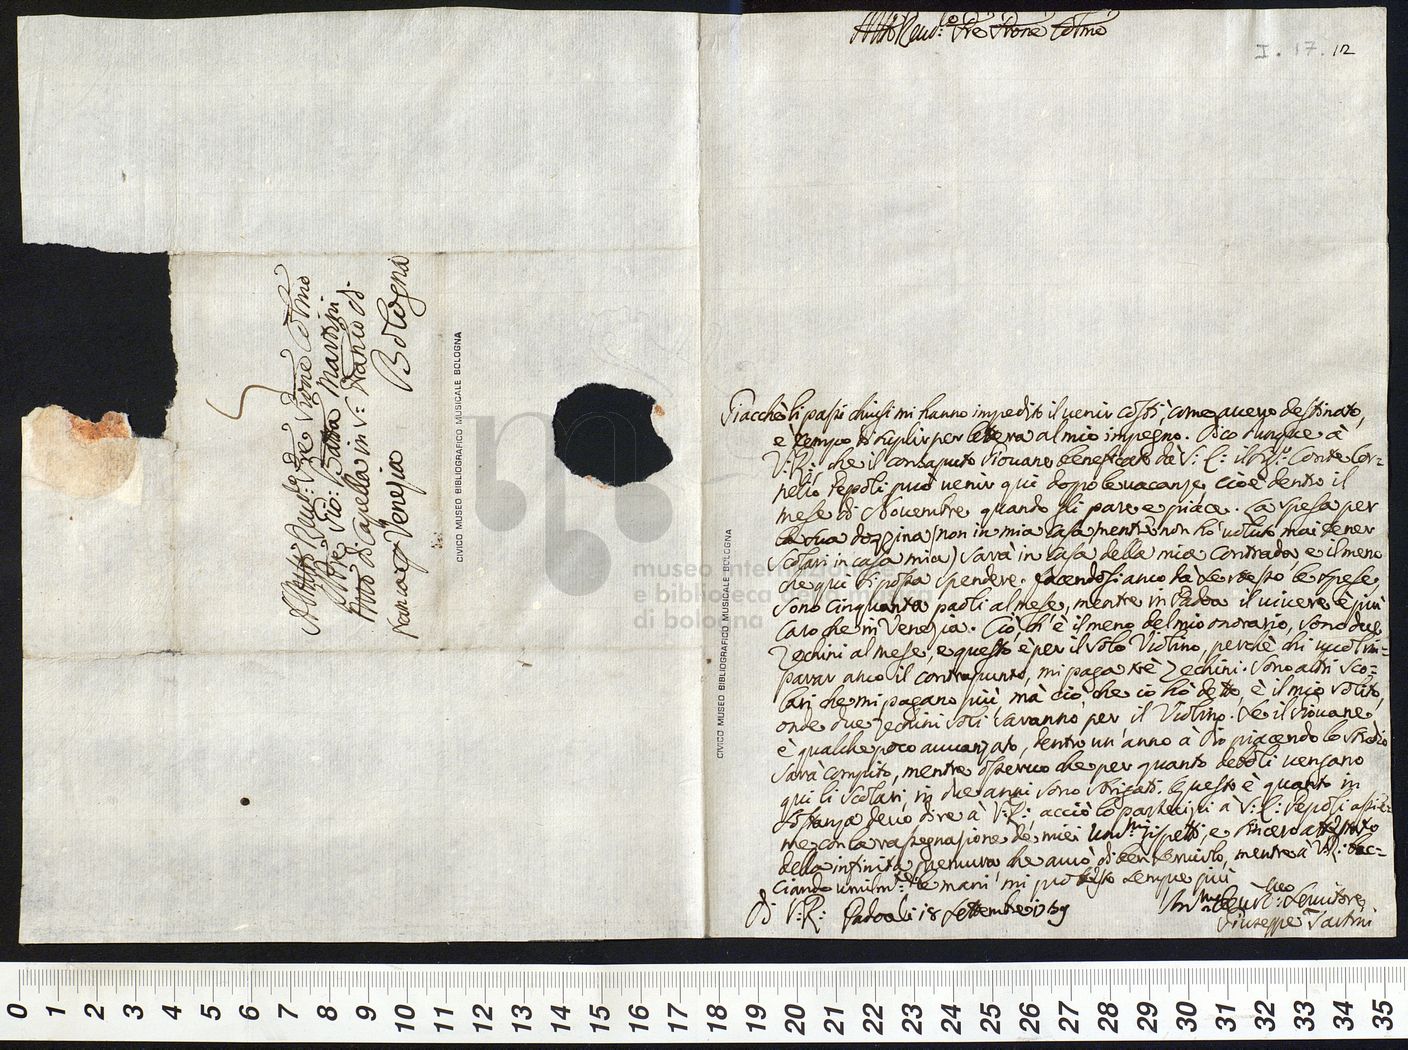 Molto Reud:o Pre Prone Colmo
I. 17. 12
Giacche li passi chiusi mi hanno impedito il venir costì, come avevo destinato,
è tempo di suplir per lettera al mio impegno. Dico dunque à
V: R:, che il consaputo Giovane beneficato da S: E: il Sig.r Conte Cor=
nelio Pepoli può venir qui dopo le vacanze, cioè dentro il
mese di Novembre quando gli pare e piace. La spesa per
la sua dozzina (non in mia casa, mentre non hò voluto mai tener
scolari in casa mia) sarà in casa della mia contrada, e il meno
che quì si possa spendere, facendosi anco dà se stesso le spese,
sono cinquanta paoli al mese, mentre in Padoa il vivere è più
caro che in Venezia. Ciò, ch'è il meno del mio onorario, sono due
Zechini al mese, e questo è per il solo Violino, perchè chi vuol im=
parar anco il contrapunto, mi paga trè Zechini. Sono altri sco=
lari che mi pagano più, mà ciò, che io hò detto, è il mio solito,
onde due Zechini soli saranno per il Violino. Se il Giovane
è qualche poco avvanzato, dentro un'anno à Dio piacendo lo studio
sarà compito, mentre osservo che per quanto deboli vengano
qui li scolari, in due anni sono sbrigati. Questo è quanto in
sostanza devo dire à V: R:, acciò lo partecipi à S: E: Pepoli assie=
me con la rassegnazione de miei um:mi rispetti, e sincero attestato
della infinita premura che averò di ben servirlo, mentre à V: R: bac=
ciando umilm:te le mani mi protesto sempre più
Di V: R: Padoa li 18 Settembre 1739
Giuseppe Tartini
Al Molto Reud:o Pre Prone Colmo
Il Pre Gio: Batta Martini
Mro di Capella in S: Franco di
Franca p Venezia Bologna
CIVICO MUSEO BIBLIOGRAFICO MUSICALE BOLOGNA
CIVICO MUSEO BIBLIOGRAFICO MUSICALE BOLOGNA
museo internazionale
e biblioteca della musica
di bologna
0 1 2 3 4 5 6 7 8 9 10 11 12 13 14 15 16 17 18 19 20 21 22 23 24 25 26 27 28 29 30 31 32 33 34 35